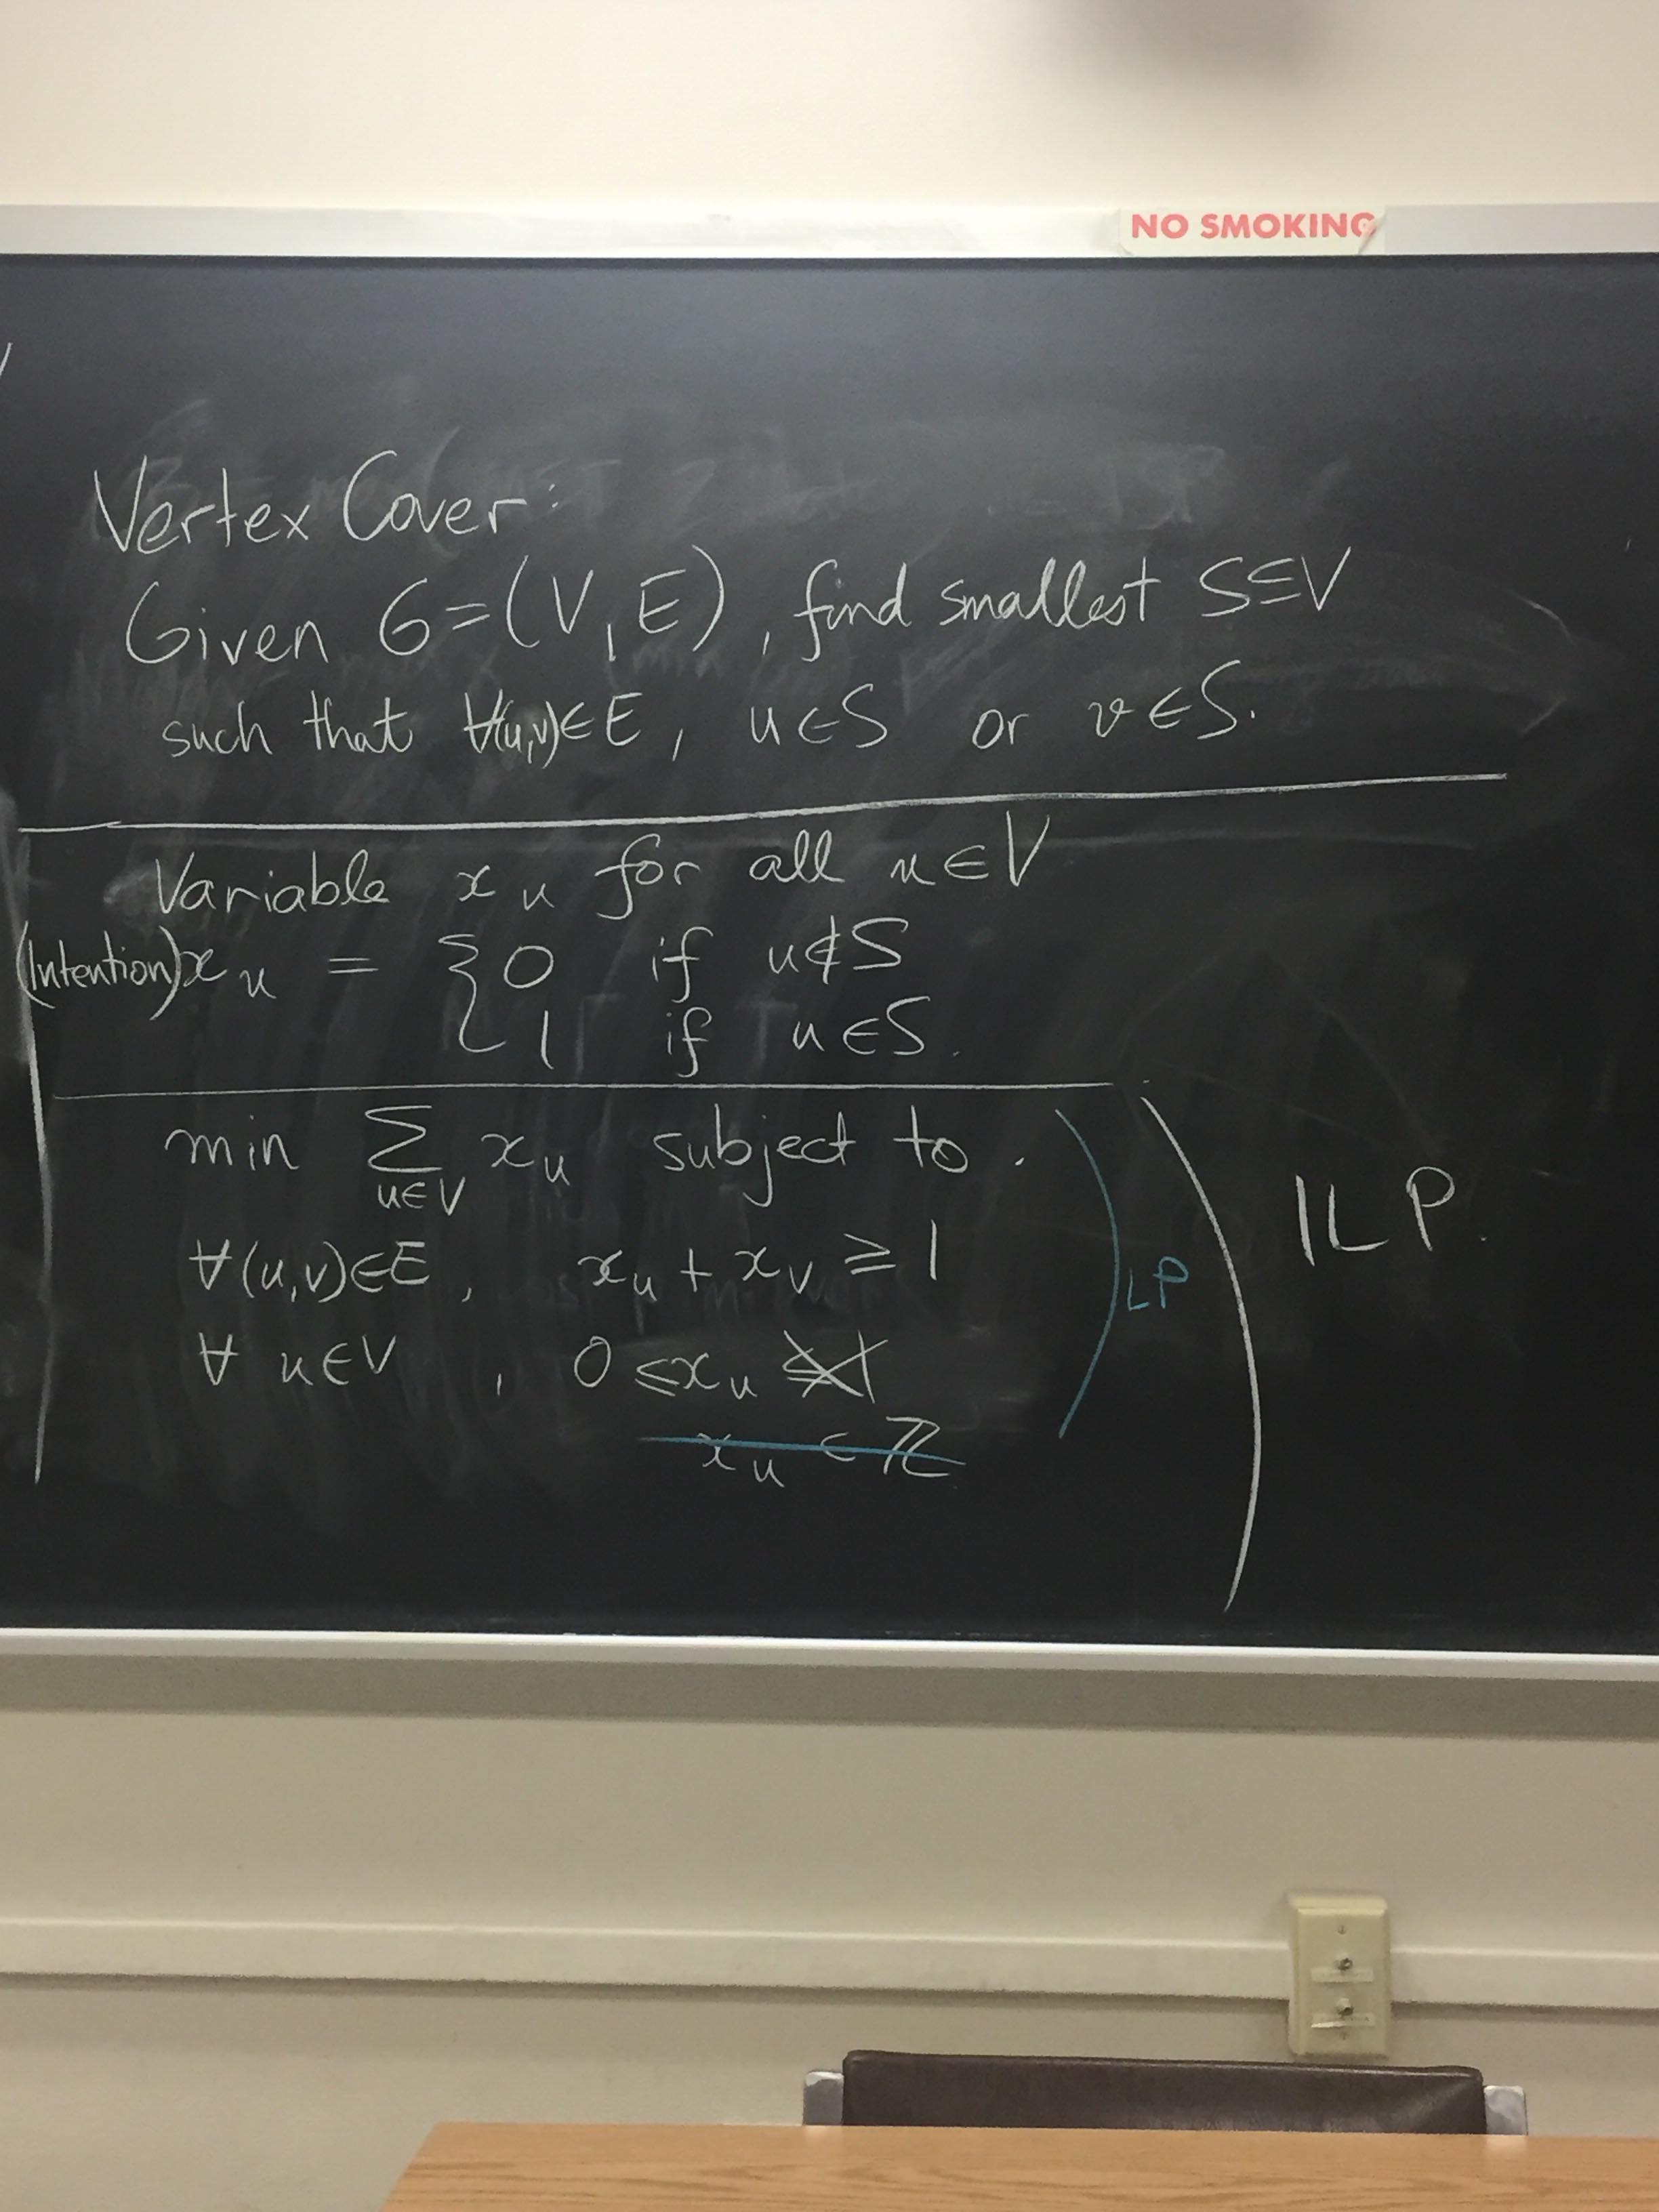 NO SMOKING
Vertex Cover:
Given G=(V,E), find smallest S⊆V
such that ∀(u,v)∈E, u∈S or v∈S.
Variable x_u for all u∈V
(Intention) x_u = { 0 if u∉S
1 if u∈S.
min ∑_{u∈V} x_u subject to.
∀(u,v)∈E, x_u + x_v ≥ 1
∀ u∈V, 0 ≤ x_u ≤ 1
x_u ∈ ℤ
LP
ILP.